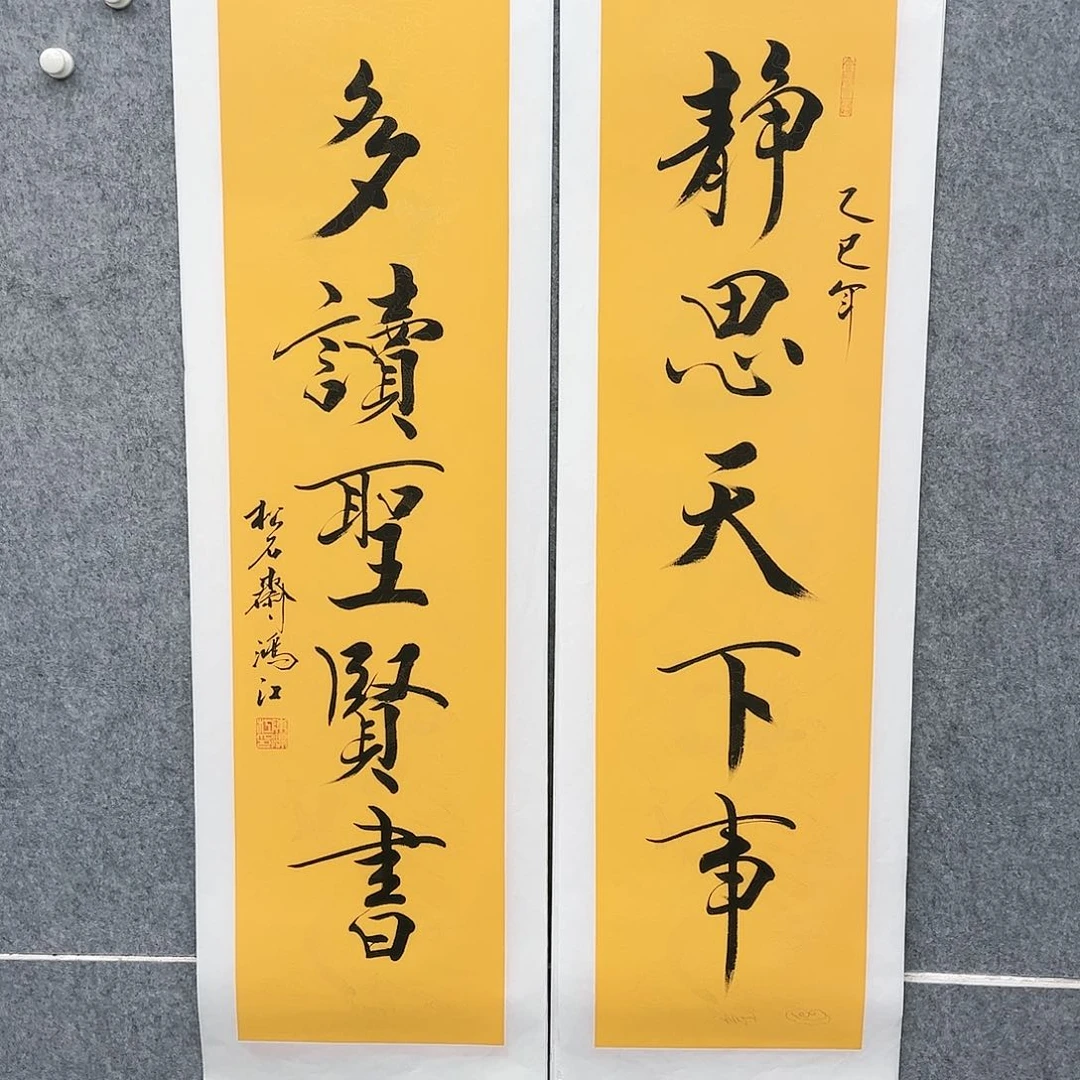 乙巳年
静思天下事
多讀聖賢書
松石齋鴻江